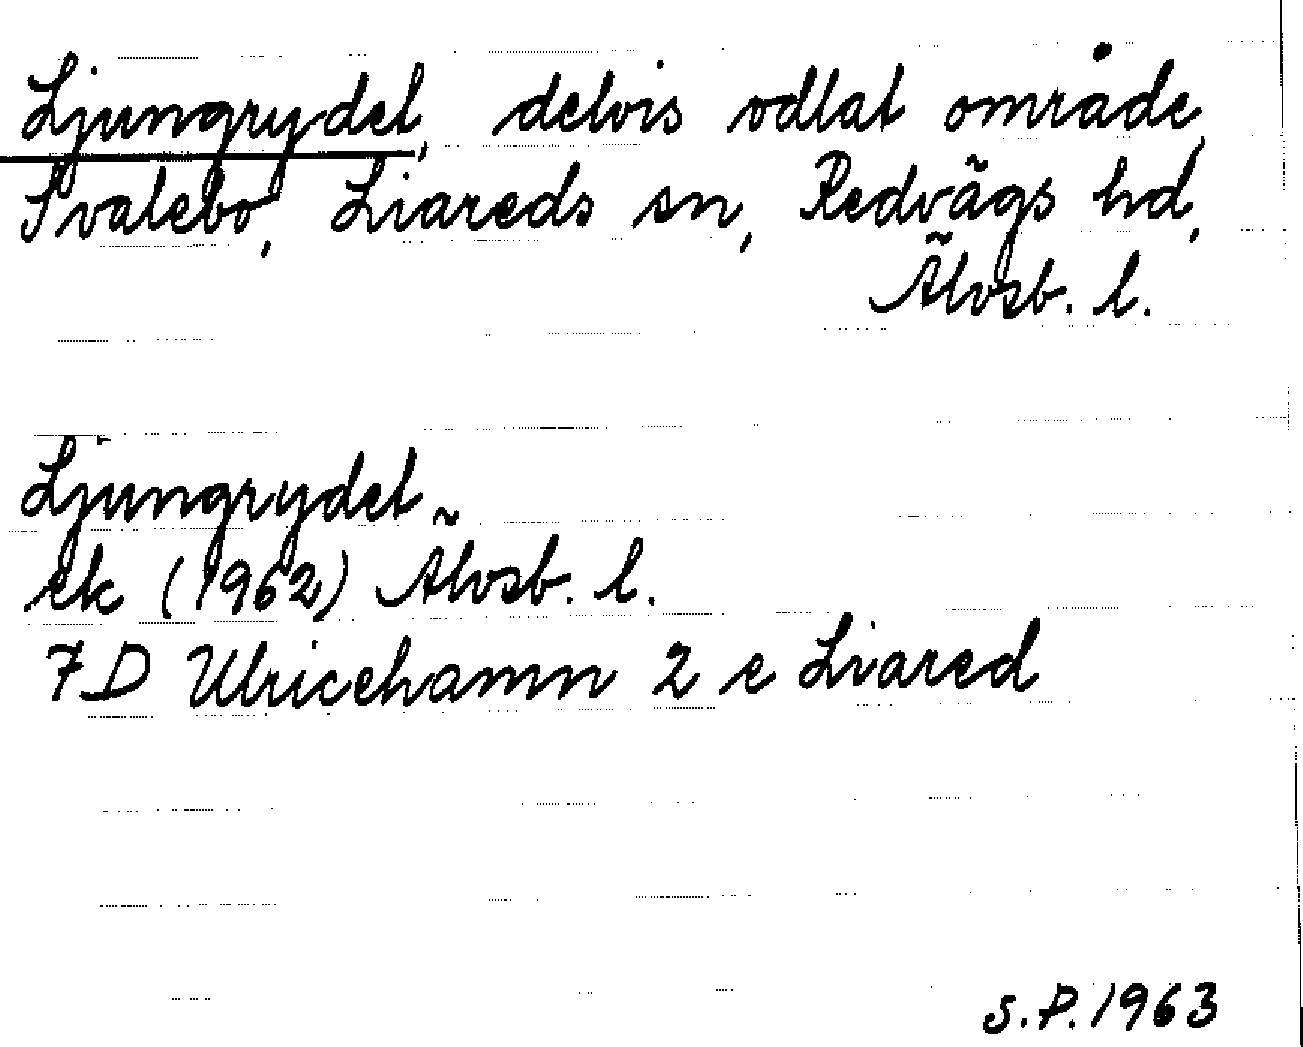 Ljungrydet, delvis odlat område,
Svalebo, Liareds sn, Redvägs hd,
Älvsb. l.
Ljungrydet
ek (1962) Älvsb. l.
7D Ulricehamn 2 e Liared
S.P. 1963